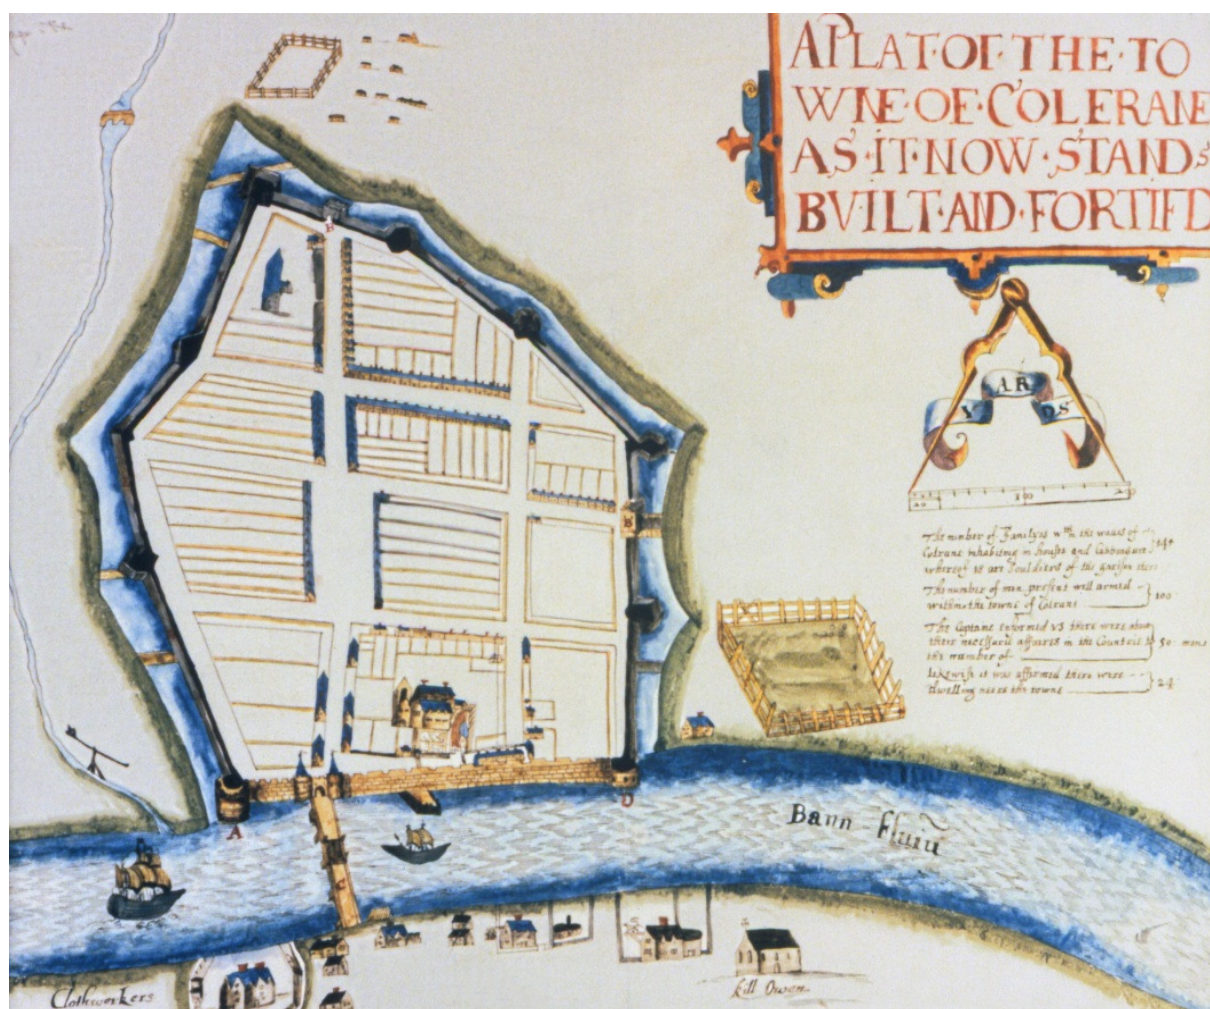 A PLAT·OF·THE·TO
WNE·OF·COLERANE
AS·IT·NOW·STANDS
BVILT·AND·FORTIFD
Y AR DS
100
The number of Familyes wth in the walls of
Colrane inhabiting in houses and Cabbons are
whereof 12 are Souldiers of the garison there
The number of men present will armed
within the towne of Colrane 100
The Captane enformed vs there were about
their necessarie affaires in the Countrie
the number of 50 mene
likewise it was affirmed there were
dwelling neere the towne 24
B
B
A
D
C
Bann fluiũ
Clothworkers
kill Owen